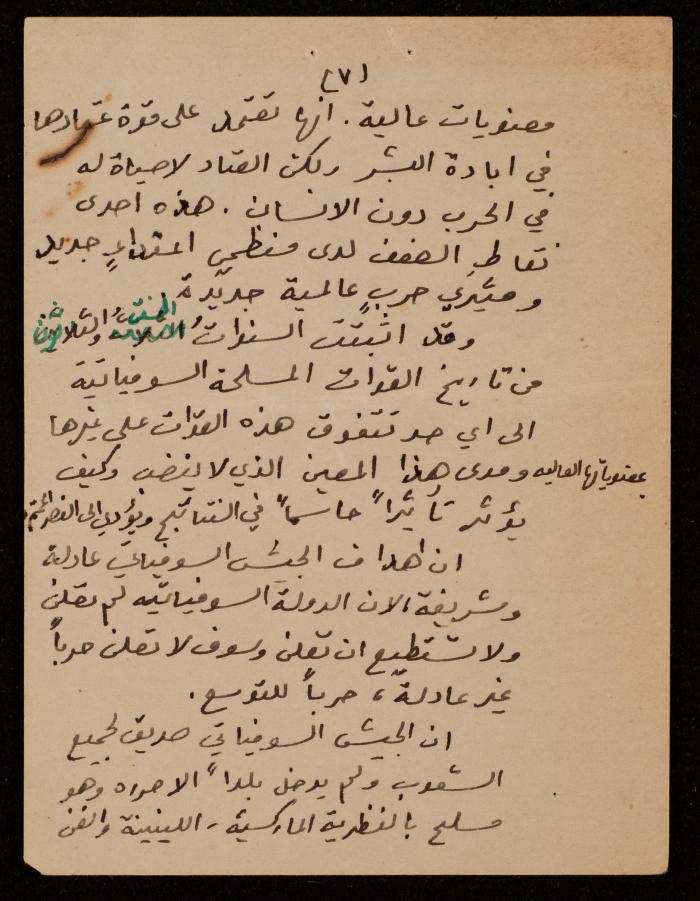 (٧)
معنويات عالية. انها تعتمد على قوة عتادها
في ابادة البشر ولكن العتاد لا حياة له
في الحرب دون الانسان. هذه احدى
نقاط الضعف لدى منظمي اعتداءٍ جديد
ومثيري حربٍ عالمية جديدة
وقد اثبتت السنوات والثلاثون
من تاريخ القوات المسلحة السوفياتية
الى اي حد تتفوق هذه القوات على غيرها
بمعنوياتها العاليه ومدى هذا المعين الذي لا ينضب وكيف
يؤثر تأثيراً حاسماً في النتائج ويؤدي الى النصر
ان اهداف الجيش السوفياتي عادلة
وشريفة لان الدولة السوفياتيه لم تعلن
ولا تستطيع ان تعلن وسوف لا تعلن حرباً
غير عادلةً، حرباً للتوسع.
ان الجيش السوفياتي صديق لجميع
الشعوب ولم يدخل بلداً الا حرره وهو
مسلح بالنظرية الماركسية - اللينينة والفن